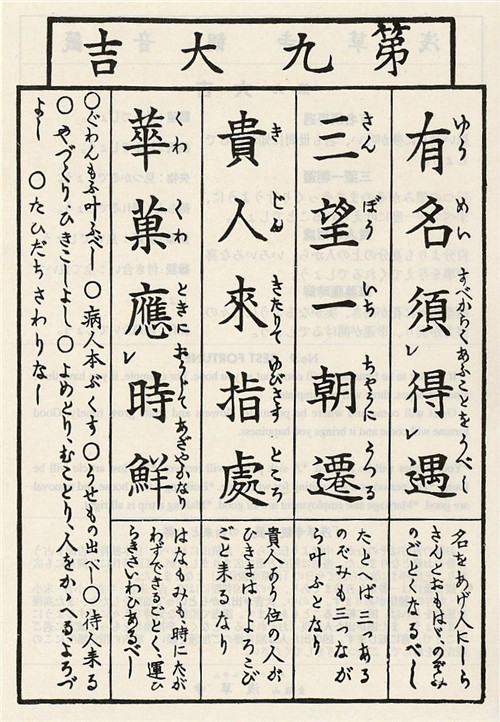 第九大吉
有名須レ得レ遇
ゆう めい すべからくあふことをうべし
名をあげ人にしら
さんとおもはゞ、のぞみ
のごとくなるべし
三望一朝遷
さん ぼう いち ちやうに うつる
たとへば三つある
のぞみも三つなが
ら叶ふとなり
貴人來指處
き じん きたりて ゆびさす ところ
貴人あり位の人が
ひきまはしよろこび
ごと来るなり
華菓應レ時鮮
くわ くわ ときに おうじて あざやかな
はなもみも、時にたが
わずできるごとく、運ひ
らきさいわひあるべし
○ぐわんもふ叶ふべし○病人本ぶくす○うせもの出べし○待人来る
○やづくり、ひきこしよし○よめとり、むことり、人をかゝへるよろづ
よし ○たびだちさわりなし